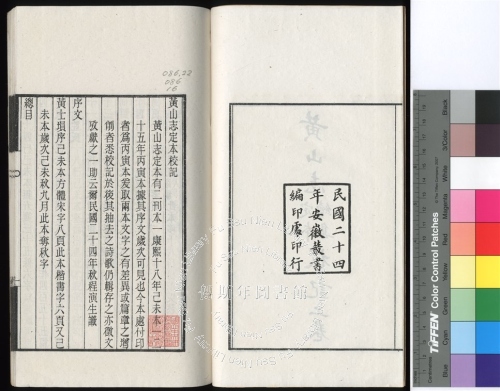 民國二十四
年安徽叢書
編印處印行
黃山志定本校記
黃山志定本有二刊本一康熙十八年己未本一二
十五年丙寅本據其序文歲次可見也今本處付印
者爲丙寅本爰取兩本文字之有差異或篇章之增
削者悉校記於後其抽去之詩歌仍輯存之亦徵文
攷獻之一助云爾民國二十四年秋程演生識
序文
黃士塤序己未本方體宋字八頁此本楷書字六頁又己
未本歲次己未秋九月此本奪秋字
總目
086.22
086
16
TIFFEN Color Control Patches
Blue
Cyan
Green
Yellow
Red
Magenta
White
3/Color
Black